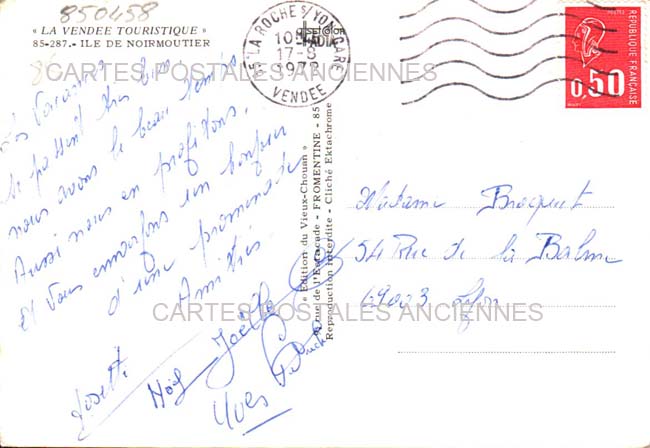 850458
« LA VENDEE TOURISTIQUE »
85-287. - ILE DE NOIRMOUTIER
Nos Vacances
se passent très bien,
nous avons le beau temps
Aussi nous en profitons.
Et Vous envoyons un bonjour
d'une promenade
Amitiés
Josette
Noël Joëlle
Yves
« Edition du Vieux-Chouan »
rue de l'Estacade - FROMENTINE - 85
Reproduction interdite - Cliché Ektachrome
85 LA ROCHE S/ YON GARE
17-8
VENDEE
REPUBLIQUE FRANÇAISE
POSTES
0,50
Madame
54 Rue de la Balme
69003 Lyon
CARTES POSTALES ANCIENNES
CARTES POSTALES ANCIENNES